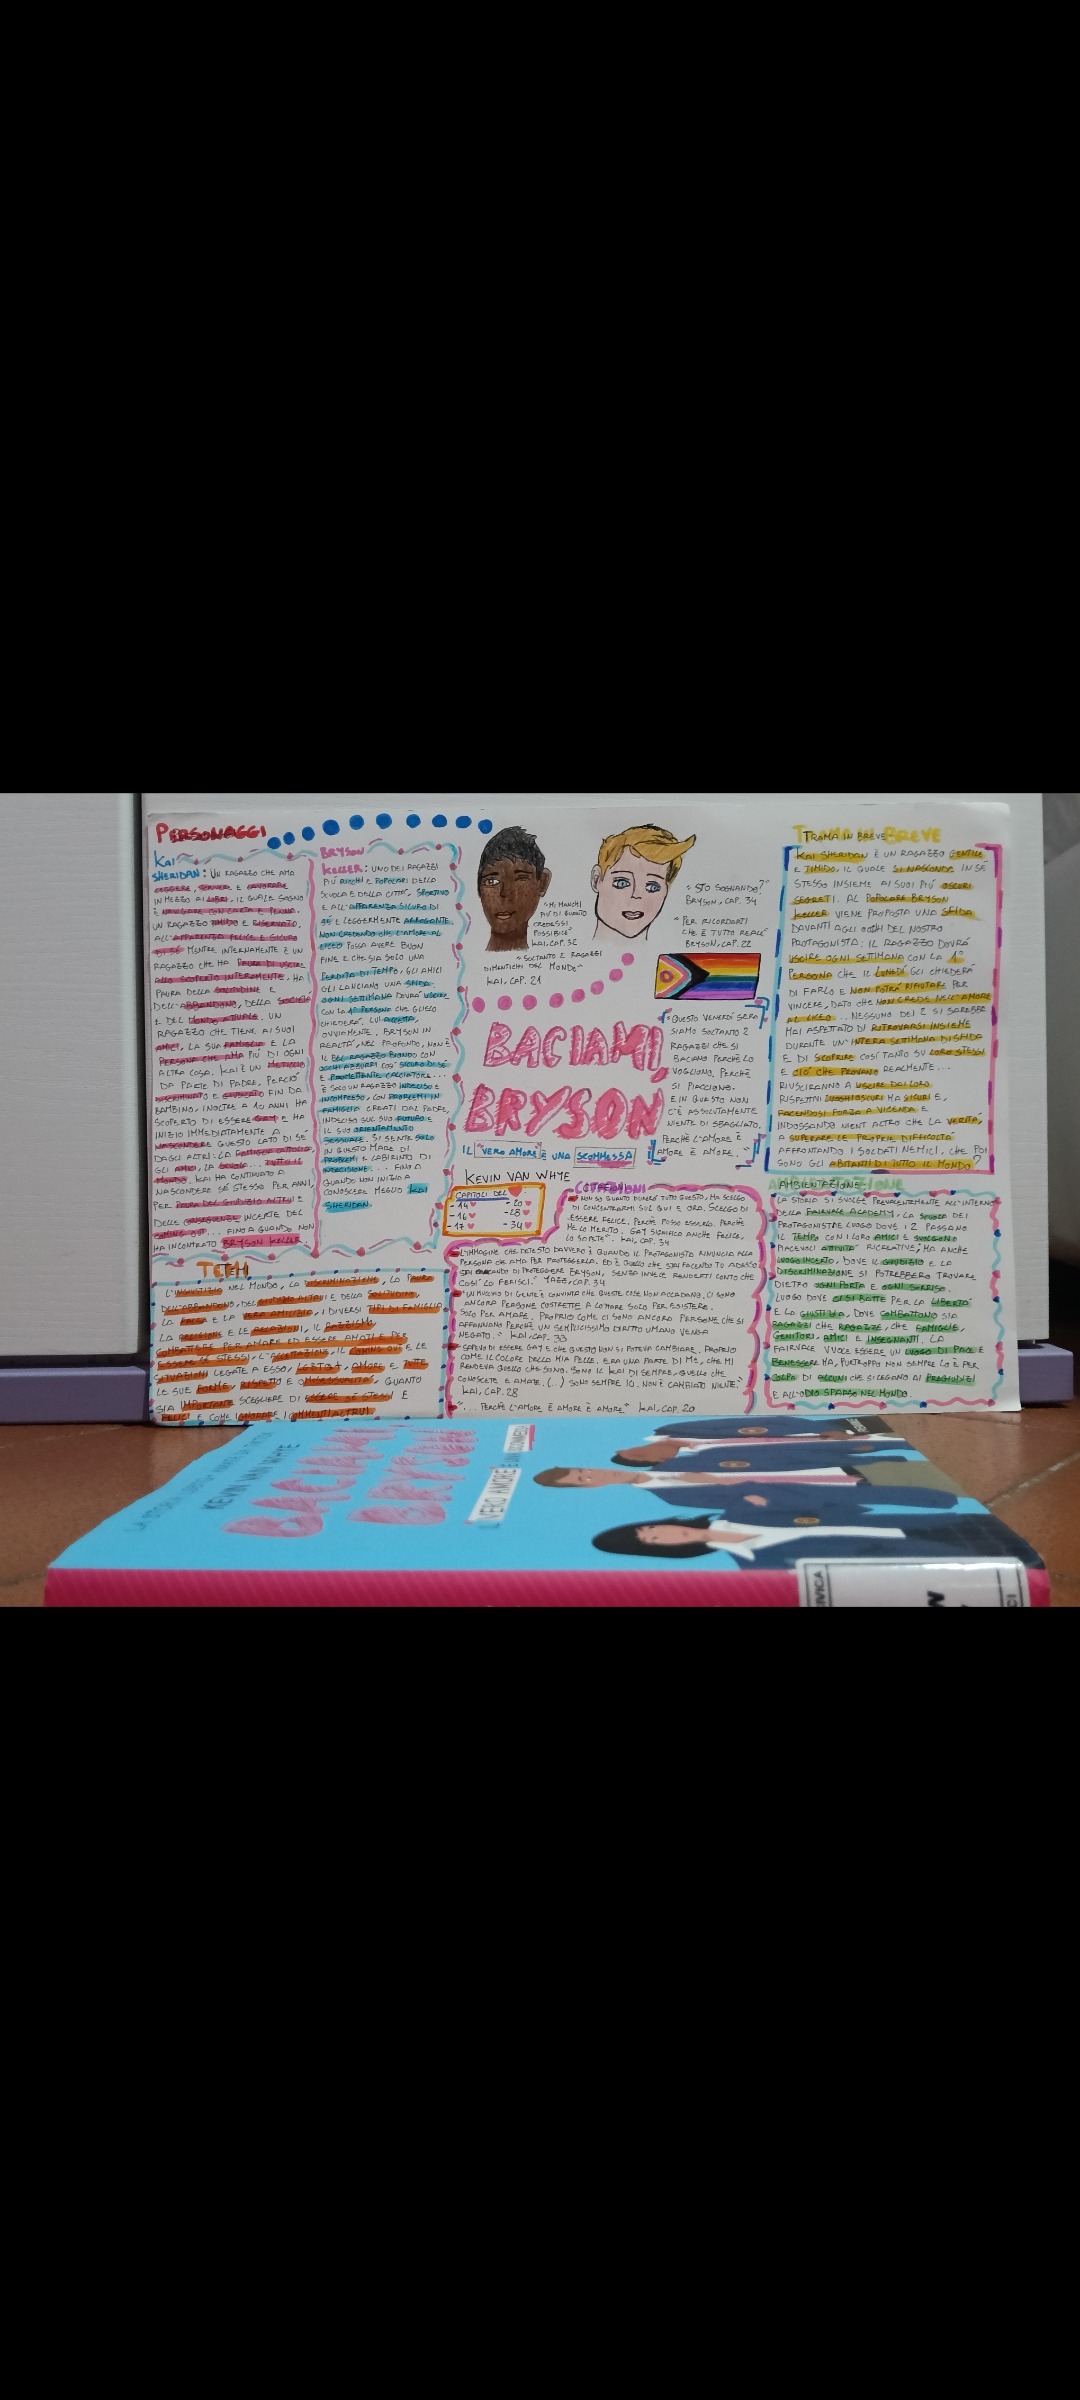 PERSONAGGI
KAI
SHERIDAN: UN RAGAZZO CHE AMA
LEGGERE, SCRIVERE E LAVORARE
IN MEZZO AI LIBRI, IL QUALE SOGNO
È NAVIGARE CON CARTA E PENNA.
UN RAGAZZO TIMIDO E RISERVATO,
ALL'APPARENZA FELICE E SICURO
DI SÉ MENTRE INTERNAMENTE È UN
RAGAZZO CHE HA PAURA DI USCIRE
ALLO SCOPERTO INTERAMENTE, HA
PAURA DELLA SOLITUDINE E
DELL'ABBANDONO, DELLA SOCIETÀ
E DEL MONDO ATTUALE. UN
RAGAZZO CHE TIENE AI SUOI
AMICI, LA SUA FAMIGLIA E LA
PERSONA CHE AMA PIÙ DI OGNI
ALTRA COSA. KAI È UN METICCIO
DA PARTE DI PADRE, PERCIÒ
DISCRIMINATO E GIUDICATO FIN DA
BAMBINO, INOLTRE A 10 ANNI HA
SCOPERTO DI ESSERE GAY E HA
INIZIO IMMEDIATAMENTE A
NASCONDERE QUESTO LATO DI SÉ
DAGLI ALTRI: LA FAMIGLIA CATTOLICA,
GLI AMICI, LA SCUOLA... TUTTO IL
MONDO. KAI HA CONTINUATO A
NASCONDERE SÉ STESSO PER ANNI,
PER PAURA DEL GIUDIZIO ALTRUI E
DELLE CONSEGUENZE INCERTE DEL
COMING OUT... FINO A QUANDO NON
HA INCONTRATO BRYSON KELLER.
BRYSON
KELLER: UNO DEI RAGAZZI
PIÙ RICCHI E POPOLARI DELLA
SCUOLA E DELLA CITTÀ, SPORTIVO
E ALL'APPARENZA SICURO DI
SÉ E LEGGERMENTE ARROGANTE.
NON CREDENDO CHE L'AMORE AL
LICEO POSSA AVERE BUON
FINE E CHE SIA SOLO UNA
PERDITA DI TEMPO, GLI AMICI
GLI LANCIANO UNA SFIDA:
OGNI SETTIMANA DOVRÀ USCIRE
CON LA 1ª PERSONA CHE GLIELO
CHIEDERÀ. LUI ACCETTA,
OVVIAMENTE. BRYSON IN
REALTÀ, NEL PROFONDO, NON È
IL BEL RAGAZZO BIONDO CON
OCCHI AZZURRI COSÌ SICURO DI SÉ
E PROMETTENTE CALCIATORE...
È SOLO UN RAGAZZO INDECISO E
INCOMPRESO, CON PROBLEMI IN
FAMIGLIA CREATI DAL PADRE,
INDECISO SUL SUO FUTURO E
IL SUO ORIENTAMENTO
SESSUALE. SI SENTE SOLO
IN QUESTO MARE DI
PROBLEMI E LABIRINTO DI
INDECISIONE... FINO A
QUANDO NON INIZIO A
CONOSCERE MEGLIO KAI
SHERIDAN.
TEMI
L'INGIUSTIZIA NEL MONDO, LA DISCRIMINAZIONE, LA PAURA
DELL'ABBANDONO, DEL GIUDIZIO ALTRUI E DELLA SOLITUDINE,
LA FALSA E LA VERA AMICIZIA, I DIVERSI TIPI DI FAMIGLIA,
LA RELIGIONE E LE RELAZIONI, IL RAZZISMO,
COMBATTERE PER AMARE ED ESSERE AMATI E PER
ESSERE SÉ STESSI, L'ACCETTAZIONE, IL COMING OUT E LE
SITUAZIONI LEGATE A ESSO, LGBTQ+, AMORE E TUTTE
LE SUE FORME, RISPETTO E OMOSESSUALITÀ, QUANTO
SIA IMPORTANTE SCEGLIERE DI ESSERE SÉ STESSI E
FELICI E COME IGNORARE I COMMENTI ALTRUI.
"MI MANCHI
PIÙ DI QUANTO
CREDESSI
POSSIBILE"
KAI, CAP. 32
"SOLTANTO 2 RAGAZZI
DIMENTICHI DEL MONDO"
KAI, CAP. 21
"STO SOGNANDO?"
BRYSON, CAP. 34
"PER RICORDARTI
CHE È TUTTO REALE"
BRYSON, CAP. 22
BACIAMI,
BRYSON
IL "VERO AMORE" È UNA SCOMMESSA
KEVIN VAN WHYE
"QUESTO VENERDÌ SERA
SIAMO SOLTANTO 2
RAGAZZI CHE SI
BACIANO PERCHÉ LO
VOGLIONO, PERCHÉ
SI PIACCIONO.
E IN QUESTO NON
C'È ASSOLUTAMENTE
NIENTE DI SBAGLIATO.
PERCHÉ L'AMORE È
AMORE È AMORE."
CAPITOLI DEL ♥
-14 ♥ -20 ♥
-16 ♥ -28 ♥
-17 ♥ -34 ♥
CITAZIONI
"NON SO QUANTO DURERÀ TUTTO QUESTO, MA SCELGO
DI CONCENTRARMI SUL QUI E ORA. SCELGO DI
ESSERE FELICE, PERCHÉ POSSO ESSERLO. PERCHÉ
ME LO MERITO. GAY SIGNIFICA ANCHE FELICE,
LO SAPETE". KAI, CAP. 34
"L'IMMAGINE CHE DETESTO DAVVERO È QUANDO IL PROTAGONISTA RINUNCIA ALLA
PERSONA CHE AMA PER PROTEGGERLA. ED È QUELLO CHE STAI FACENDO TU ADESSO.
STAI CERCANDO DI PROTEGGERE BRYSON, SENZA INVECE RENDERTI CONTO CHE
COSÌ LO FERISCI." CAP. 34
"UN MUCCHIO DI GENTE È CONVINTA CHE QUESTE COSE NON ACCADANO. CI SONO
ANCORA PERSONE COSTRETTE A LOTTARE SOLO PER ESISTERE.
SOLO PER AMARE. PROPRIO COME CI SONO ANCORA PERSONE CHE SI
AFFANNANO PERCHÉ UN SEMPLICISSIMO DIRITTO UMANO VENGA
NEGATO." KAI, CAP. 33
"SAPEVO DI ESSERE GAY E CHE QUESTO NON SI POTEVA CAMBIARE. PROPRIO
COME IL COLORE DELLA MIA PELLE, ERA UNA PARTE DI ME, CHE MI
RENDEVA QUELLO CHE SONO. SONO IL KAI DI SEMPRE, QUELLO CHE
CONOSCETE E AMATE. (..) SONO SEMPRE IO. NON È CAMBIATO NIENTE."
KAI, CAP. 28
"... PERCHÉ L'AMORE È AMORE È AMORE." KAI, CAP. 20
TRAMA IN BREVE
KAI SHERIDAN È UN RAGAZZO GENTILE
E TIMIDO, IL QUALE SI NASCONDE IN SÉ
STESSO INSIEME AI SUOI PIÙ OSCURI
SEGRETI. AL POPOLARE BRYSON
KELLER VIENE PROPOSTA UNA SFIDA
DAVANTI AGLI OCCHI DEL NOSTRO
PROTAGONISTA: IL RAGAZZO DOVRÀ
USCIRE OGNI SETTIMANA CON LA 1ª
PERSONA CHE IL LUNEDÌ GLI CHIEDERÀ
DI FARLO E NON POTRÀ RIFIUTARE PER
VINCERE, DATO CHE NON CREDE NELL'AMORE
AL LICEO... NESSUNO DEI 2 SI SAREBBE
MAI ASPETTATO DI RITROVARSI INSIEME
DURANTE UN'INTERA SETTIMANA DI SFIDA
E DI SCOPRIRE COSÌ TANTO SU LORO STESSI
E CIÒ CHE PROVANO REALMENTE...
RIUSCIRANNO A USCIRE DAI LORO
RISPETTIVI LUOGHI OSCURI MA SICURI E,
FACENDOSI FORZA A VICENDA E
INDOSSANDO NIENT'ALTRO CHE LA VERITÀ,
A SUPERARE LE PROPRIE DIFFICOLTÀ
AFFRONTANDO I SOLDATI NEMICI, CHE POI
SONO GLI ABITANTI DI TUTTO IL MONDO?
AMBIENTAZIONE
LA STORIA SI SVOLGE PREVALENTEMENTE ALL'INTERNO
DELLA FAIRVALE ACADEMY, LA SCUOLA DEI
PROTAGONISTI E LUOGO DOVE I 2 PASSANO
IL TEMPO CON I LORO AMICI E SVOLGONO
PIACEVOLI ATTIVITÀ RICREATIVE; MA ANCHE
LUOGO INCERTO, DOVE IL GIUDIZIO E LA
DISCRIMINAZIONE SI POTREBBERO TROVARE
DIETRO OGNI PORTA E OGNI SORRISO.
LUOGO DOVE CI SI BATTE PER LA LIBERTÀ
E LA GIUSTIZIA, DOVE COMBATTONO SIA
RAGAZZI CHE RAGAZZE, CHE FAMIGLIE,
GENITORI, AMICI E INSEGNANTI. LA
FAIRVALE VUOLE ESSERE UN LUOGO DI PACE E
BENESSERE MA, PURTROPPO NON SEMPRE LO È PER
COLPA DI ALCUNI CHE SI LEGANO AI PREGIUDIZI
E ALL'ODIO SPARSO NEL MONDO.
KEVIN VAN WHYE
BACIAMI,
BRYSON
IL VERO AMORE È UNA SCOMMESSA
CIVICA